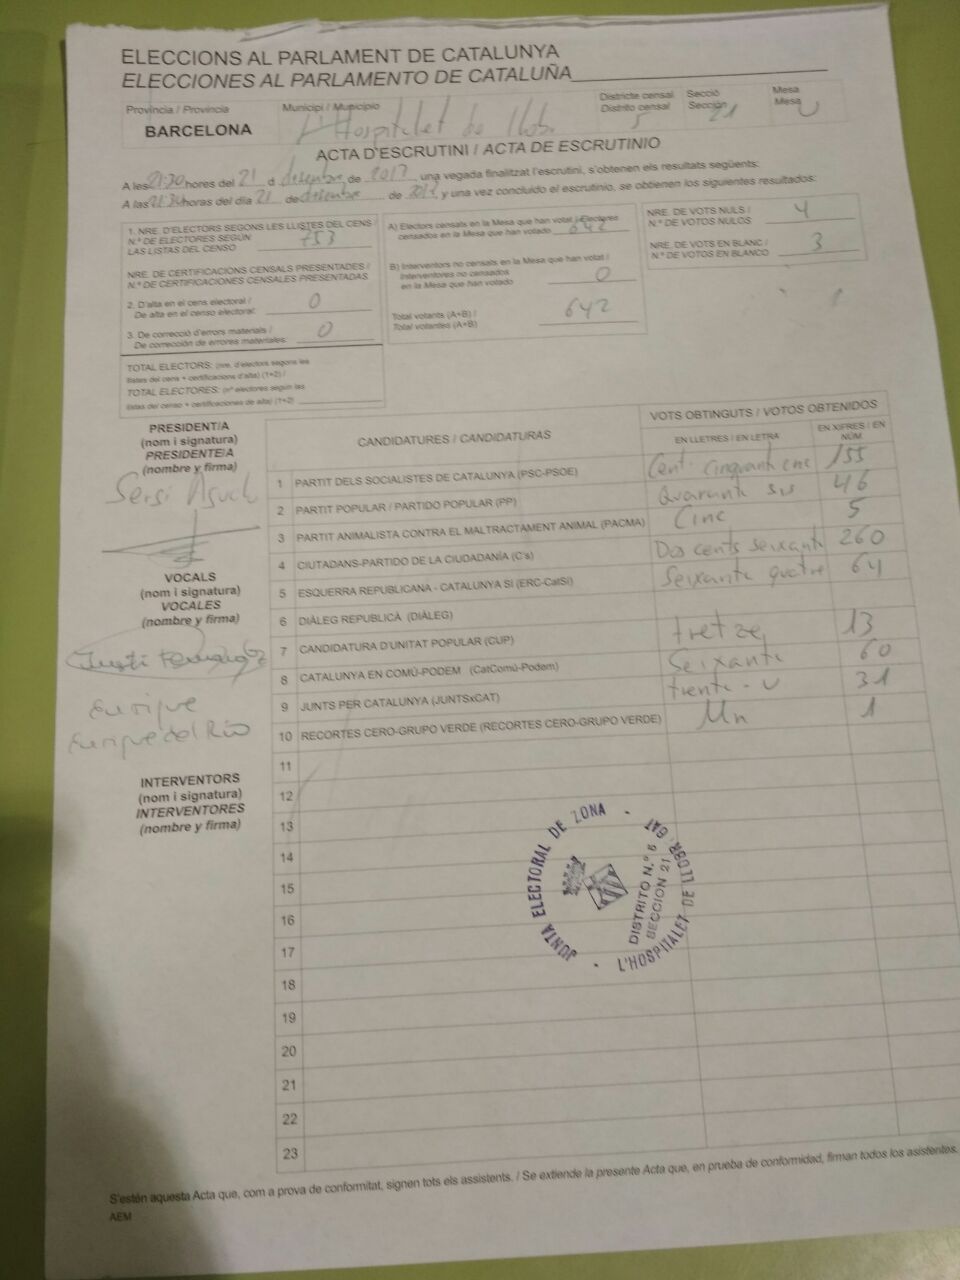 ELECCIONS AL PARLAMENT DE CATALUNYA
ELECCIONES AL PARLAMENTO DE CATALUÑA
Província / Provincia
BARCELONA
Municipi / Municipio
L'Hospitalet de Llob.
Districte censal
Distrito censal
5
Secció
Sección
21
Mesa
Mesa
U
ACTA D'ESCRUTINI / ACTA DE ESCRUTINIO
A les 21:30 hores del 21 d desembre de 2017 una vegada finalitzat l'escrutini, s'obtenen els resultats següents:
A las 21:30 horas del día 21 de desembre de 2017, y una vez concluido el escrutinio, se obtienen los siguientes resultados:
1. NRE. D'ELECTORS SEGONS LES LLISTES DEL CENS
N.º DE ELECTORES SEGÚN
LAS LISTAS DEL CENSO 753
NRE. DE CERTIFICACIONS CENSALS PRESENTADES /
N.º DE CERTIFICACIONES CENSALES PRESENTADAS
2. D'alta en el cens electoral /
De alta en el censo electoral: 0
3. De correcció d'errors materials /
De corrección de errores materiales: 0
TOTAL ELECTORS: (nre. d'electors segons les
llistes del cens + certificacions d'alta) (1+2) /
TOTAL ELECTORES: (nº electores según las
listas del censo + certificaciones de alta) (1+2)
A) Electors censats en la Mesa que han votat / Electores
censados en la Mesa que han votado 642
B) Interventors no censats en la Mesa que han votat /
Interventores no censados
en la Mesa que han votado 0
Total votants (A+B) /
Total votantes (A+B) 642
NRE. DE VOTS NULS /
N.º DE VOTOS NULOS 4
NRE. DE VOTS EN BLANC /
N.º DE VOTOS EN BLANCO 3
PRESIDENT/A
(nom i signatura)
PRESIDENTE/A
(nombre y firma)
VOCALS
(nom i signatura)
VOCALES
(nombre y firma)
Enrique
Enrique del Río
INTERVENTORS
(nom i signatura)
INTERVENTORES
(nombre y firma)
CANDIDATURES / CANDIDATURAS
VOTS OBTINGUTS / VOTOS OBTENIDOS
EN LLETRES / EN LETRA
EN XIFRES / EN NÚM
1 PARTIT DELS SOCIALISTES DE CATALUNYA (PSC-PSOE) Cent cinquanta cinc 155
2 PARTIT POPULAR / PARTIDO POPULAR (PP) Quaranta sis 46
3 PARTIT ANIMALISTA CONTRA EL MALTRACTAMENT ANIMAL (PACMA) Cinc 5
4 CIUTADANS-PARTIDO DE LA CIUDADANÍA (C's) Dos cents seixanta 260
5 ESQUERRA REPUBLICANA - CATALUNYA SÍ (ERC-CatSí) Seixanta quatre 64
6 DIÀLEG REPUBLICÀ (DIÀLEG)
7 CANDIDATURA D'UNITAT POPULAR (CUP) tretze 13
8 CATALUNYA EN COMÚ-PODEM (CatComú-Podem) Seixanta 60
9 JUNTS PER CATALUNYA (JUNTSxCAT) trenta-U 31
10 RECORTES CERO-GRUPO VERDE (RECORTES CERO-GRUPO VERDE) Un 1
11
12
13
14
15
16
17
18
19
20
21
22
23
JUNTA ELECTORAL DE ZONA
DISTRITO N.º 5
SECCION 21
L'HOSPITALET DE LLOBR. GAT
S'estén aquesta Acta que, com a prova de conformitat, signen tots els assistents. / Se extiende la presente Acta que, en prueba de conformidad, firman todos los asistentes.
AEM